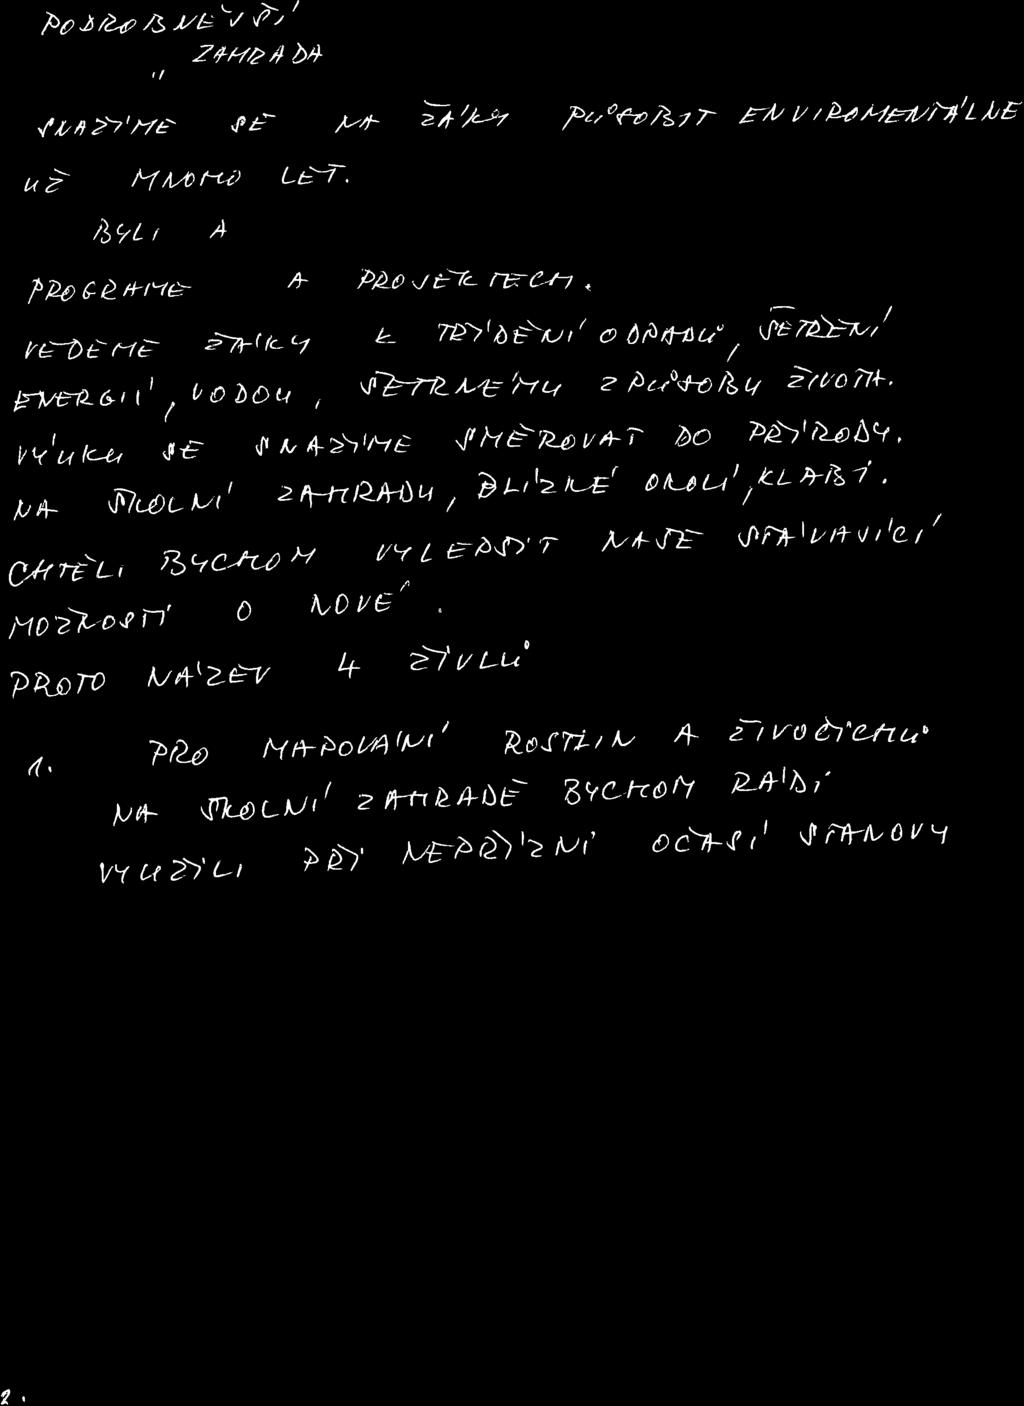 PODROBNĚJŠÍ
ZAHRADA
"
SNAŽÍME SE NA ŽÁKY PŮSOBIT ENVIROMENTÁLNE
UŽ MNOHO LET.
BYLI A
PROGRAME A PROJEKTECH.
VEDEME ŽÁKY K TŘÍDĚNÍ ODPADŮ, ŠETŘENÍ
ENERGIÍ, VODOU, ŠETRNÉMU ZPŮSOBU ŽIVOTA.
VÝUKU SE SNAŽÍME SMĚROVAT DO PŘÍRODY.
NA ŠKOLNÍ ZAHRADU, BLÍZKÉ OKOLÍ,
CHTĚLI BYCHOM VYLEPŠIT NAŠE STÁVAJÍCÍ
MOŽNOSTI O NOVÉ.
PROTO NÁZEV 4 ŽIVLŮ
1. PRO MAPOVÁNÍ ROSTLIN A ŽIVOČICHŮ
NA ŠKOLNÍ ZAHRADĚ BYCHOM RÁDI
VYUŽILI PŘI NEPŘÍZNI OČASÍ STANOVY
2.